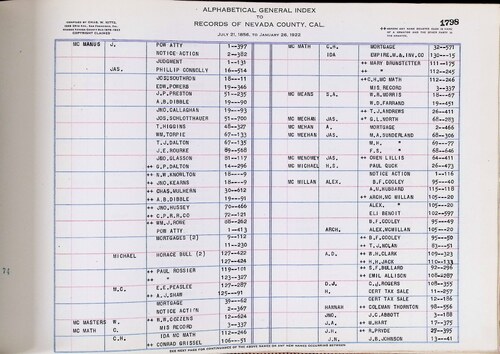 ALPHABETICAL GENERAL INDEX
TO
RECORDS OF NEVADA COUNTY, CAL.
JULY 21, 1856, TO JANUARY 26, 1922
1798
COPYRIGHT CLAIMED
MC MANUS J. POW ATTY 1--397
NOTICE ACTION 2--382
JUDGMENT 1--131
JAS. PHILLIP CONNOLLY 16--514
JOS SOUTHRON 18---11
EDW. POWERS 19--346
J.P. PRESTON 51--235
A.B. DIBBLE 19---90
JNO. CALLAGHAN 19---93
JOS. SCHLOTTHAUER 51--700
T. HIGGINS 48--327
WM. TORPIE 67--133
T.J. DALTON 67--135
J.E. ROURKE 68--568
JNO. GLASSON 81--117
++ G.P. DALTON 14--296
++ R.W. KNOWLTON 18----9
++ JNO. KEARNS 18----9
++ CHAS. MULHERN 30--612
++ A.B. DIBBLE 19---91
++ JNO. HUSSEY 70--466
++ C.P.R.R. CO 72--121
++ WM. J. ROWE 88--262
POW ATTY 1--413
MORTGAGES (2) 9--112
11--230
MICHAEL HORACE BULL (2) 127--422
127--424
++ PAUL ROSSIER 119--101
++ " 123--327
M.C. E.E. PEASLEE 127--287
++ A.J. SHAR 125---91
MORTGAGE 39---62
NOTICE ACTION 2--367
MC MASTERS W. ++ R.R. COZZENS 12--624
MC MATH C. MIS RECORD 3--337
C.H. IDA MC MATH 112--246
++ CONRAD GRISSEL 106---51
MC MATH C.H. MORTGAGE 32--571
IDA EMPIRE M.& INV. CO 130---15
++ MARY BRUNSTETTER 111--175
++ " 112--245
++ C.H. MC MATH 112--246
MIS RECORD 3--337
MC MEANS S.A. W.B. MORRIS 18---67
W.D. FARRAND 19--451
++ T.J. ANDREWS 26--411
MC MECHAN JAS. ++ G.L. NORTH 68--283
MC MEHAN A. MORTGAGE 2--466
MC MEEKEN JAS. M.A. SUNDERLAND 68--306
W.H. " 69---77
F.S. " 68--646
MC MENOMEY JAS. ++ OWEN LILLIS 84--411
MC MICHAEL H.S. PAUL GUCK 26--473
NOTICE ACTION 1--116
MC MILLAN ALEX. B.F. COOLEY 95---40
A.H. HUBBARD 115--118
++ ARCH. MC MILLAN 105---20
ALEX. " 105---20
ELI BENOIT 102--597
B.F. COOLEY 95---49
ARCH. ALEX. MCMILLAN 105---20
++ B.F. COOLEY 95---50
++ T.J. NOLAN 83---51
A.D. ++ W.H. CLARK 105--323
++ H.H. JACK 110--133
++ S.F. BULLARD 92--296
++ EMIL ALLISON 108--287
D.J. C.J. ROGERS 108--355
H. CERT TAX SALE 11--257
CERT TAX SALE 12--186
HANNAH ++ COLEMAN THORNTON 98--556
JNO. J.C. ABBOTT 3--188
J.A. ++ M. HART 17--375
J.H. ++ R. PRYDE 25--395
J.N. J.B. JOHNSON 13--41